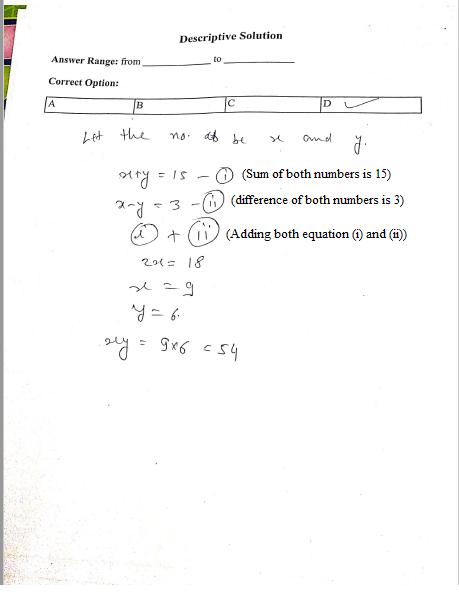 Descriptive Solution
Answer Range: from ____________ to ____________
Correct Option:
A B C D ✓
Let the no. be x and y.
x+y = 15 - (i) (Sum of both numbers is 15)
x-y = 3 - (ii) (difference of both numbers is 3)
(i) + (ii) (Adding both equation (i) and (ii))
2x = 18
x = 9
y = 6.
xy = 9×6 = 54